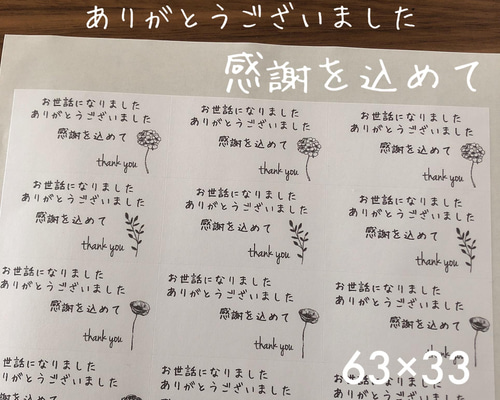 ありがとうございました
感謝を込めて
お世話になりました
ありがとうございました
感謝を込めて
thank you
お世話になりました
ありがとうございました
感謝を込めて
thank you
お世話になりました
ありがとうございました
感謝を込めて
thank you
お世話になりました
ありがとうございました
感謝を込めて
thank you
お世話になりました
ありがとうございました
感謝を込めて
thank you
お世話になりました
ありがとうございました
感謝を込めて
thank you
お世話になりました
ありがとうございました
感謝を込めて
thank you
お世話になりました
ありがとうございました
感謝を込めて
thank you
お世話になりました
ありがとうございました
感謝を込めて
thank you
世話になりました
りがとうございました
感謝を込めて
お世話になりました
ありがとうございました
感謝を込めて
お世話になりました
63×33